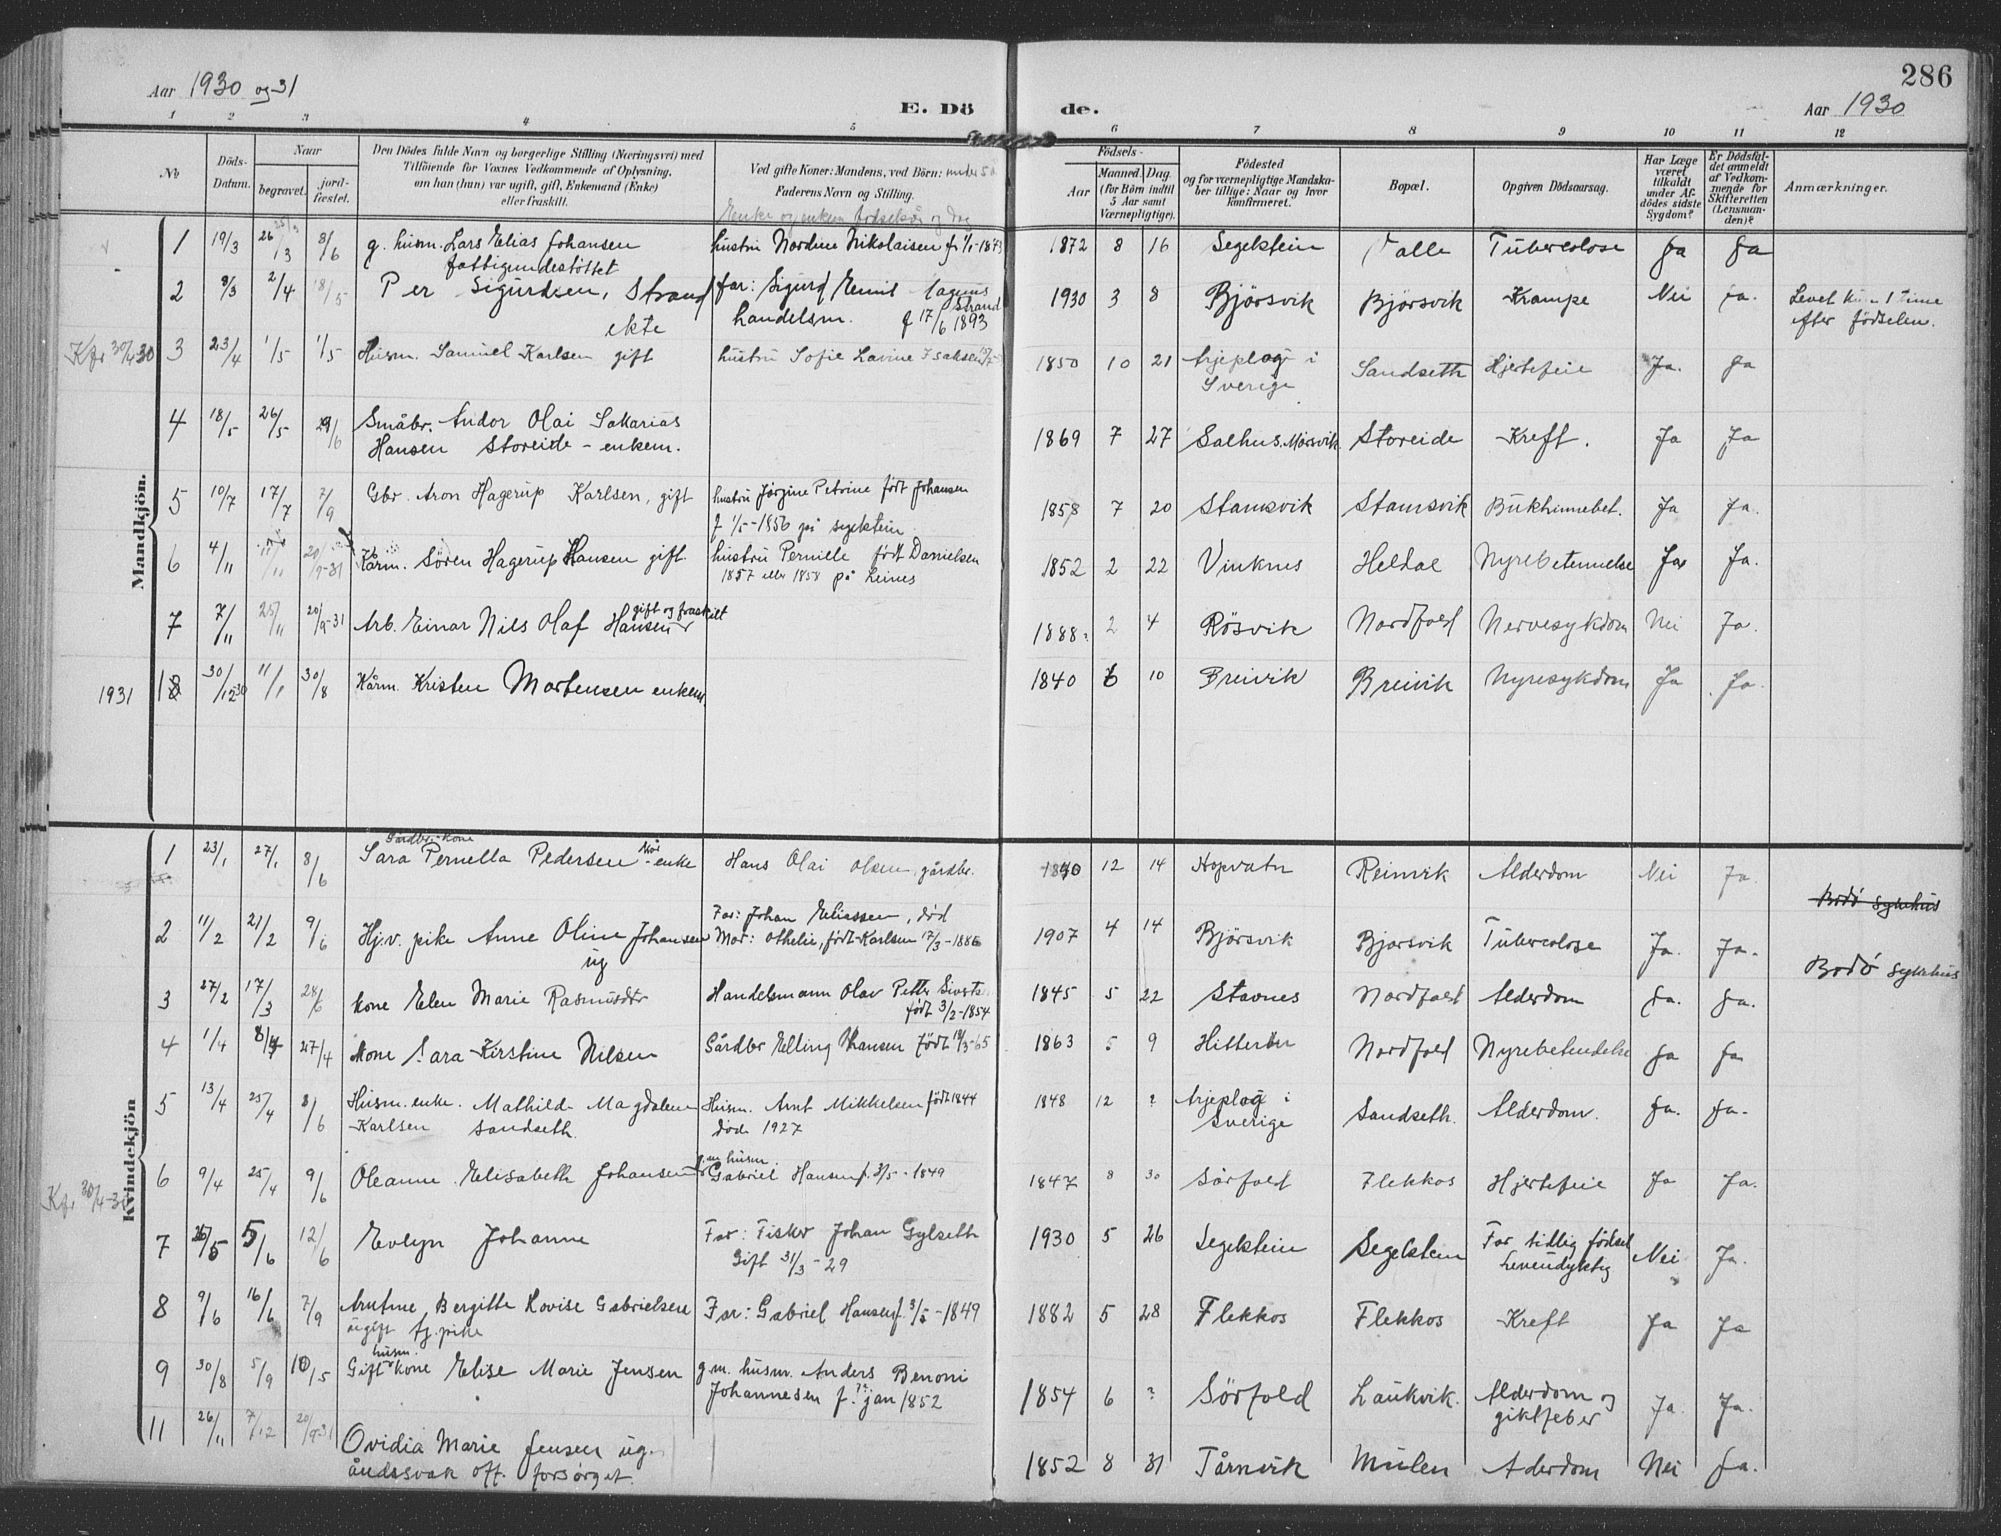 286
Aar 1930 og 31
E. Dö de.
Aar 1930
1 2 3 4 5 6 7 8 9 10 11 12
No
Döds-Datum.
Naar
begravet.
jord-fæstet.
Den Dödes fulde Navn og borgerlige Stilling (Næringsvei) med
Tilföiende for Voxnes Vedkommende af Oplysning,
om han (hun) var ugift, gift, Enkemand (Enke)
eller fraskilt.
Ved gifte Koner: Mandens, ved Börn:
Faderens Navn og Stilling.
Födsels-
Aar
Maaned. Dag.
(for Börn indtil
5 Aar samt
Værnepligtige).
Födested
og for værnepligtige Mandska-
ber tillige: Naar og hvor
konfirmeret.
Bopæl.
Opgiven Dödsaarsag.
Har Læge
været
tilkaldt
under Af-
dödes sidste
Sygdom?
Er Dödsfal-
det anmeldt
af Vedkom-
mende for
Skifteretten
(Lensman-
den)?
Anmærkninger.
Mandkjön.
1 19/3 8/6 g. husm. Lars Elias Johansen hustru Nordine Nikolaisen 1872 8 16 Segelstein Tuberculose Ja Ja
fattigunderstöttet
2 8/3 2/4 18/5 Per Sigurdsen, Strand far: Sigurd Emil Magnus 1930 3 8 Björsvik Björsvik Krampe Nei Ja. Levet kun 1 time
ekte handelsm. Strand f 17/6 1893 efter födselen.
Kfr 30/4 30 3 23/4 1/5 1/5 Husm. Samuel Karlsen gift hustru Sofie Lavine Isaksen 1850 10 21 Arjeplog i Sandseth Hjertefeil Ja. Ja
Sverige
4 18/5 26/5 Småbr. Andor Olai Sakarias 1869 7 27 Salhus. Mørsvik Storeide Kreft. Ja Ja
Hansen Storeide - enkem.
5 10/7 17/7 7/9 Gbr. Aron Hagerup Karlsen, gift hustru Jørgine Petrine født Johansen 1858 7 20 Stamsvik Stamsvik Bukhinnebet. Ja Ja.
f 1/5-1856 på
6 4/11 20/9-31 Kårm. Søren Hagerup Hansen gift. hustru Pernille født Danielsen 1852 2 22 Vinknes Heldal Nyrebetennelse Ja Ja.
1857 eller 1858 på Leines
7 7/11 25/11 20/9-31 Arb. Einar Nils Olaf Hansen gift og fraskilt 1888 2 4 Røsvik Nordfold Nervesykdom Nei Ja.
1931 1 30/12 30 11/1 30/8 Kårm. Kristen Mortensen enkem. 1840 6 10 Breivik Breivik Nyresykdom Ja Ja.
Kvindekjön
Gårdbr. kone
1 23/1 27/1 8/6 Sara Pernella Pedersen enke Hans Olai Olsen, gårdbr. 12 14 Hopvatn Reinvik Alderdom Nei Ja.
Bodø sykehus
2 11/2 21/2 9/6 Hj.v. pike Anne Oline Johansen Far: Johan Eliassen, död 1907 4 14 Björsvik Bjorsvik Tuberculose Ja. Ja.
ug Mor: Othelie, født Karlsen 17/3-1886 Bodø sykehus
3 27/2 17/3 28/6 kone Elen Marie Rasmusdtr Handelsmann Olav Petter 1845 5 22 Stavnes Nordfold Alderdom Ja. Ja.
født 3/2-1854
4 1/4 8/4 27/4 Kone Sara Kirstine Nilsen Gårdbr Elling Hansen født 1863 5 9 Nordfold Nyrebetendelse Ja Ja
5 13/4 25/4 8/6 Husm. enke. Mathilde Magdalene Husm. Arnt Mikkelsen født 1844 1848 12 ? Arjeplog i Sandseth. Alderdom. Ja. Ja.
Karlsen Sandseth. død 1927 Sverige
Kfr 30/4-30 6 9/4 25/4 9/6 Oleanne Elisabeth Johansen Gabriel Hansen f. 3/5-1849 1847 8 30 Sørfold Flekkos Hjertefeil Ja Ja.
7 26/5 5/6 12/6 Evelyn Johanne Far: Fisker Johan Gylseth 1930 5 26 Segelstein Segelstein For tidlig födsel Nei Ja.
Gift 31/3-29
8 9/6 16/6 7/9 Bergitte Lovise Gabrielsen Far: Gabriel Hansen f. 3/5-1849 1882 5 28 Flekkos Flekkos Kreft Ja Ja
ugift tj. pike
9 30/8 5/9 10/5 Gift husm. kone Elise Marie Jensen g.m. husm. Anders Benoni 1854 6 ? Sörfold Laukvik. Alderdom og Ja. Ja.
Johannesen f. ? jan 1852 giktfeber
11 26/11 7/12 20/9-31 Ovidia Marie Jensen ug. 1852 8 31 Tårnvik Mulen Aderdom Nei Ja.
åndssvak off. forsørget.